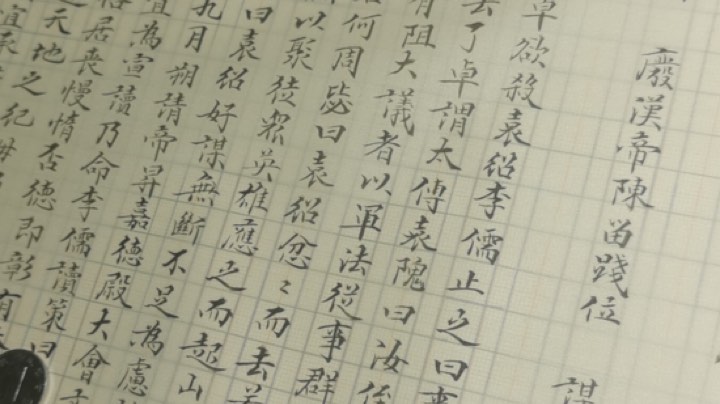 廢漢帝陳畄踐位
謀
卓欲殺袁紹李儒止之曰事
去了卓謂太傅袁隗曰汝侄
有阻大議者以軍法從事群
何周毖曰袁紹忿〻而去若
以聚徒衆英雄應之而起山
曰袁紹好謀無斷不足為慮
九月朔請帝昇嘉德殿大會
宜為宣讀乃命李儒讀策曰
居喪慢惰否德即彰有
天地之紀
宜承